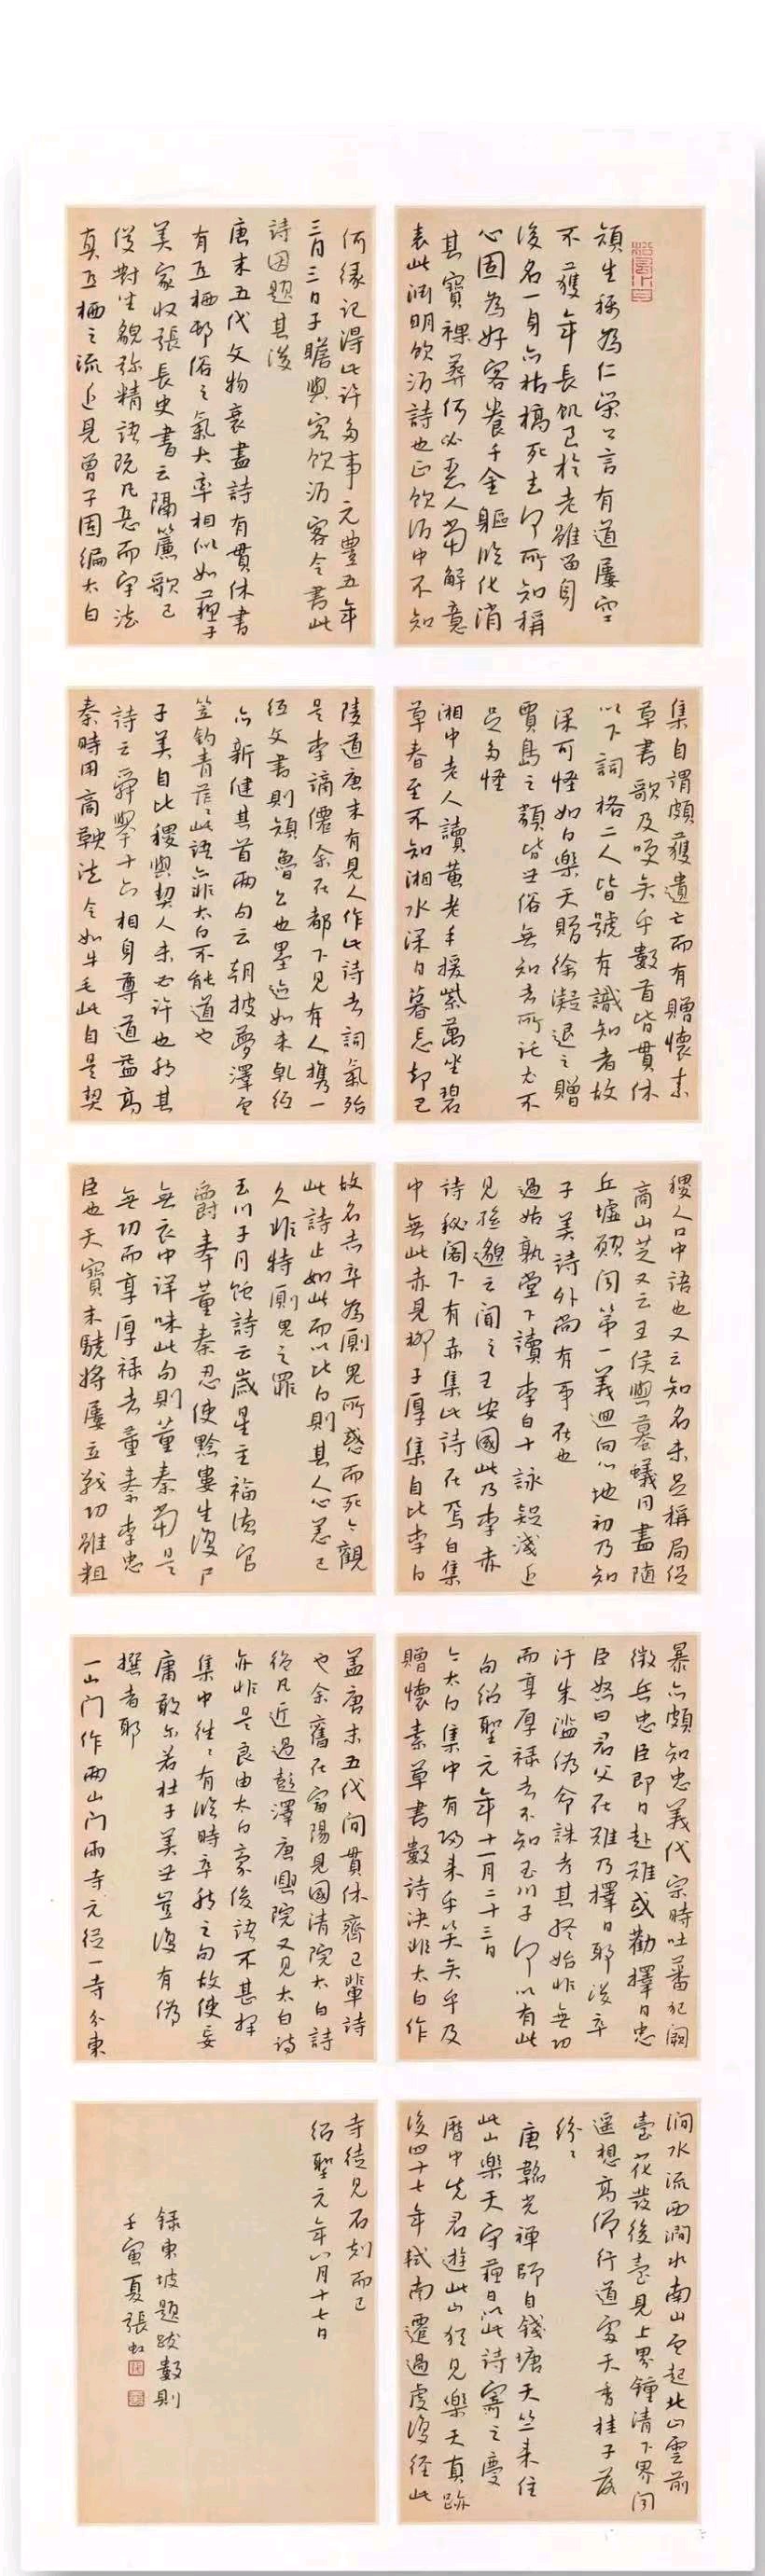 顔生稱為仁榮公言有道屢空
不獲年長飢已於老雖留
後名一身亦枯槁死去何所知稱
心固為好客養千金軀臨化消
其寶裸葬何必惡人當解意
表此淵明飲酒詩也正飲酒中不知
何緣記得此許多事元豐五年
三月三日子瞻與客飲酒客令書此
詩因題其後
唐末五代文物衰盡詩有貫休書
有亞栖村俗之氣大率相似如蘇子
美家收張長史書云隔簾歌已
俊對坐貌弥精語既凡惡而字法
真亞栖之流近見曾子固編太白
集自謂頗獲遺亡而有贈懷素
草書歌及笑矣乎數首皆貫休
以下詞格二人皆號有識知者故
深可怪如白樂天贈徐凝退之贈
賈島之類皆世俗無知者所託尤不
足多怪
湘中老人讀黄老手援紫藟坐碧
草春至不知湘水深日暮忘却巴
陵道唐末有見人作此詩者詞氣殆
是李謫僊余在都下見有人攜一
紙文書則顔魯公也墨迹如未乹紙
亦新健其首兩句云朝披夢澤雲
笠釣青茫茫此語亦非太白不能道也
子美自比稷與契人未必許也然其
詩云舜舉十六相身尊道益高
秦時用商鞅法令如牛毛此自是契
稷人口中語也又云知名未足稱局促
商山芝又云王侯與螻蟻同盡隨
丘墟願聞第一義迴向心地初乃知
子美詩外尚有事在也
過姑孰堂下讀李白十詠疑淺近
見孫邈云聞之王安國此乃李赤
詩秘閣下有赤集此詩在焉白集
中無此赤見柳子厚集自比李白
故名赤卒為厠鬼所惑而死今觀
此詩止如此而以比白則其人心恙已
久非特厠鬼之罪
玉川子月蝕詩云歲星主福德官
爵奉董秦忍使黔婁生覆尸
無衣巾詳味此句則董秦當是
無功而享厚禄者董秦李忠
臣也天寶末驍將屢立戰功雖粗
暴亦頗知忠義代宗時吐蕃犯闕
徵兵忠臣即日赴難或勸擇日忠
臣怒曰君父在難乃擇日耶後卒
汙朱泚偽命誅考其終始非無功
而享厚禄者不知玉川子何以有此
句紹聖元年十一月二十三日
今太白集中有歸來乎笑矣乎及
贈懷素草書數詩決非太白作
蓋唐末五代間貫休齊己輩詩
也余舊在富陽見國清院太白詩
絶凡近過彭澤唐興院又見太白詩
亦非是良由太白豪俊語不甚擇
集中往往有臨時率然之句故使妄
庸敢尔若杜子美世豈復有偽
撰者耶
一山門作兩山門兩寺元從一寺分東
澗水流西澗水南山雲起北山雲前
臺花發後臺見上界鐘清下界聞
遥想高僧行道處天香桂子落
紛紛
唐韜光禪師自錢塘天竺来住
此山樂天守蘇日以此詩寄之慶
曆中先君遊此山猶見樂天真跡
後四十七年軾南遷過虔復經此
寺徒見石刻而已
紹聖元年八月十七日
録東坡題跋數則
壬寅夏張虹